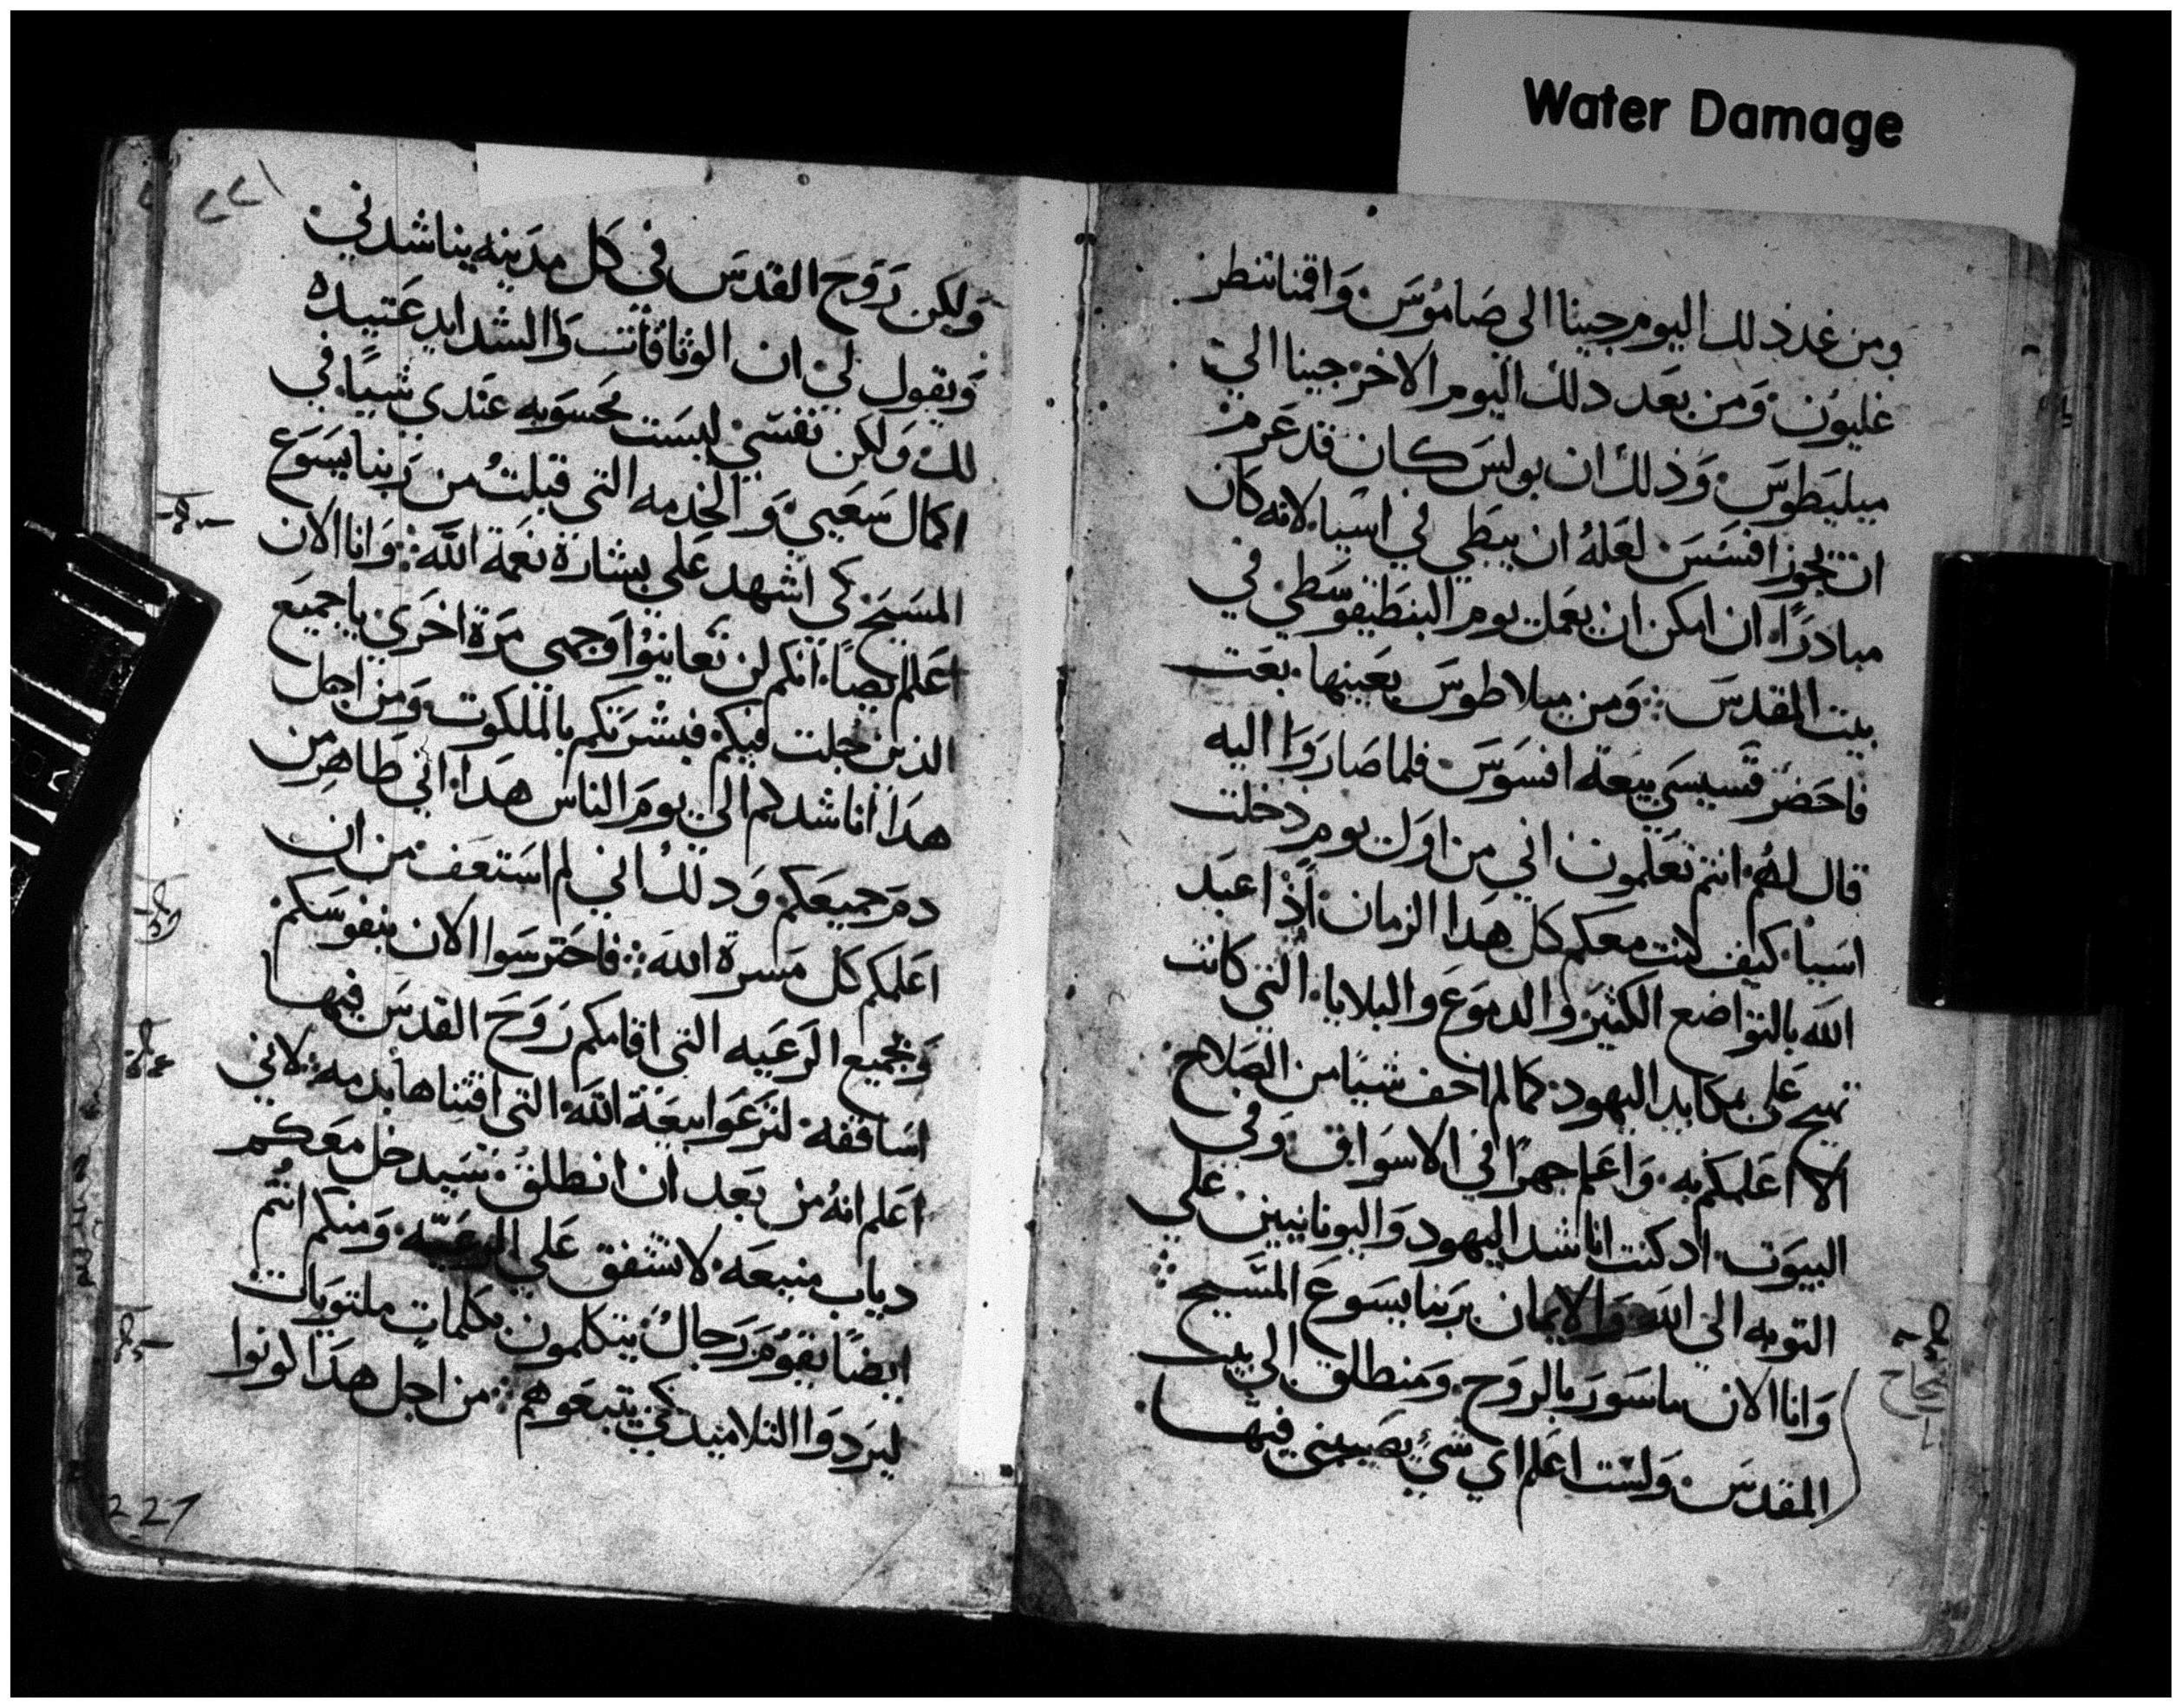 Water Damage
ومن غد ذلك اليوم جينا الى صَاموُسَ وَاقمنا ننطر
غليون وَمن بَعَد دلك اليوم الاخر جينا الي
ميليَطوسَ وَذلك ان بولسَ كان قد عَزم
ان تجوز افسَسَ لعَلهُ ان يبطي في اسَيا لانه كان
مبادرًا ان امكن ان يعَمل يوم البنطيقوسَطي في
بيت المقدسَ وَمن ميلاطوسَ بعَينها بعَت
فاحَضر قسيسَي بيعَة افسَوسَ فلما صَارَوَا اليه
قال لهُم انتم تعَلمون اني من اوَل يوم دخلت
اسَيا كيف كنت معكم كل هدا الزمان اذ اعَبَد
الله بالتوَاضع الكثير وَالدموَع والبلايا التي كانت
تهيج عَلي مكايد اليهود كما لم اخف شيًا من الصَلاح
الا اعَلمكم به وَاعَلم جهرًا في الاسوَاق وَفي
البيوَت اد كنت اناشد اليهود وَاليونانيين علي
التوبه الي الله وَالايمان برَبنا يسَوعَ المسَيح
وَانا الان ماسَورَ بالروَح وَمنطلق الي بيت
المقدسَ وَلسَت اعَلم اي شيً يصَيبني فيها
وَلكن رَوَحَ القدسَ في كل مدَينه يناشدني
وَيقول لي ان الوَثاقات وَالشدايد عَتيده
لك وَلكن نفسَي ليسَت محسَوَبه عَندي شيًا في
اكمال سَعَيي وَالخدمه التي قبلتُ من رَبنا يسَوَع
المسَيح كي اشهد عَلي بشارَة نعَمة الله وَانا الان
اعَلم ايضًا انكم لن تعَاينوُا وَجهي مَرة اخرَي يا جميَع
الذين جُلت فيكم فبشرَتكم بالملكوت وَمن اجل
هدَا اناشدكم الي يومَ الناس هدَا اني طاهر من
دمَ جميعَكم وَدلك اني لم اسَتعَف من ان
اعَلمكم كل مسَرة الله فاحَترسَوا الان بنفوسَكم
وَبجميع الرَعَيه التي اقامكم رَوَحَ القدسَ فيها
اسَاقفه لترَعَوَا بيعَة الله التي اقتناها بدمه لاني
اعَلم انهُ من بَعَد ان انطلق سَيدخل معَكم
دياب منيعَه لا تشفق عَلي الرعَيّه وَمنكم انتُم
ايضًا يقوُمَ رَجالُ يتكلمون بكلماتٍ ملتويَات
ليرَدوَا التلاميد كي يتبعَوهم من اجل هدَا كونوا
227